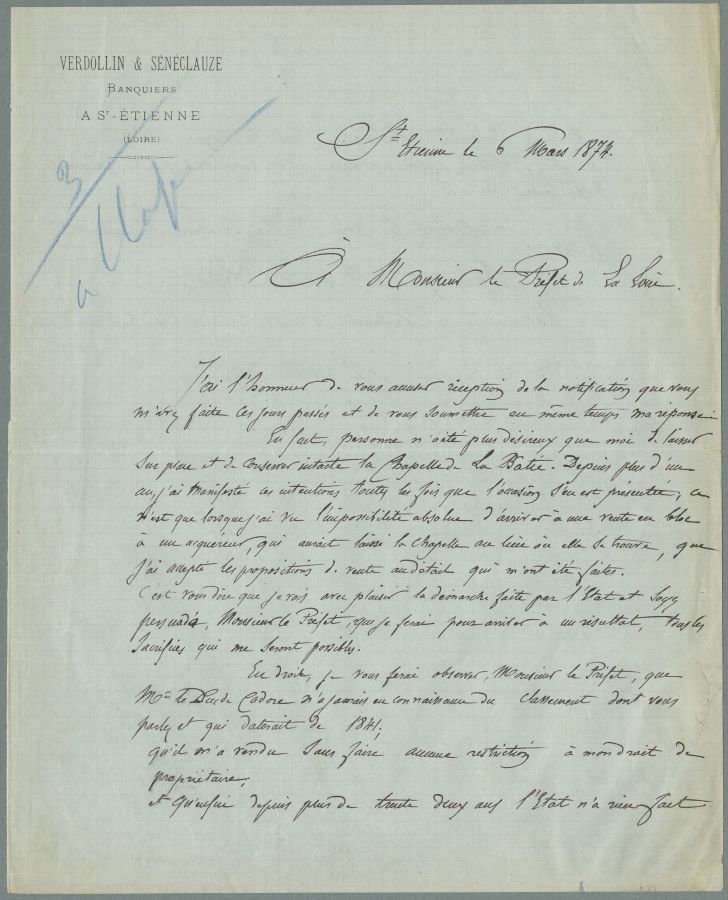 VERDOLLIN & SÉNÉCLAUZE
BANQUIERS
A ST-ÉTIENNE
(LOIRE)
3
St Etienne le 6 Mars 1874.
À Monsieur le Préfet de La Loire.
J'ai l'honneur de vous accuser réception de la notification que vous
m'avez faite ces jours passés et de vous soumettre en même temps ma réponse.
En fait, personne n'a été plus désireux que moi de laisser
sur place et de conserver intacte la Chapelle de La Batie. Depuis plus d'un
an, j'ai manifesté ces intentions toutes les fois que l'occasion s'en est présentée; ce
n'est que lorsque j'ai vu l'impossibilité absolue d'arriver à une vente en bloc
à un acquéreur, qui aurait laissé la Chapelle au lieu où elle se trouve, que
j'ai accepté les propositions de vente au détail qui m'ont été faites.
C'est vous dire que je vois avec plaisir la démarche faite par l'Etat et soyez
persuadé, Monsieur le Préfet, que je ferai pour arriver à un résultat, tous les
sacrifices qui me seront possibles.
En droit, je vous ferai observer, Monsieur le Préfet, que
Mr le Duc de Cadore n'a jamais eu connaissance du classement dont vous
parlez et qui daterait de 1841;
qu'il m'a vendu sans faire aucune restriction à mon droit de
propriétaire;
et qu'enfin depuis plus de trente deux ans l'Etat n'a rien fait